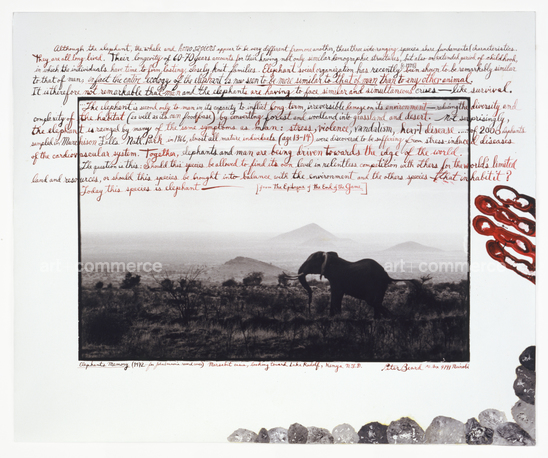 Although the elephant, the whale and homo sapiens appear to be very different from one another, these three wide ranging species share fundamental characteristics.
They are all long lived. Their longevity of 60-70 years accounts for their having not only similar demographic structures, but also extended period of childhood,
in which the individuals have time to form lasting, closely knit families. Elephant social organization has recently been shown to be remarkably similar
to that of man: in fact the entire ecology of the elephant is now seen to be more similar to that of man than to any other animal.
It is therefore not remarkable that man and the elephants are having to face similar and simultaneous crises — like survival.
The elephant is second only to man in its capacity to inflict long term, irreversible damage on its environment — reducing the diversity and
complexity of the habitat (as well as its own food base) by converting forest and woodland into grassland and desert. Not surprisingly,
the elephant is ravaged by many of the same symptoms as man: stress, violence, vandalism, heart disease — of 2000 elephants
sampled in Murchison Falls Nat'l Park in 1966, almost all mature individuals (age 13-19) were discovered to be suffering from stress-induced diseases
of the cardiovascular system. Together, elephants and man are being driven towards the edge of the world.
The question is this: should this species be allowed to find its own level in relentless competition with others for the world's limited
land and resources, or should this species be brought into balance with the environment and the others species that inhabit it?
Today this species is elephant.
[from The Epilogue of The End of the Game]
art commerce
art commerce
Elephant's Memory (1972 Marsabit main, looking toward Lake Rudolf, Kenya, N.F.D.
Peter Beard Nairobi